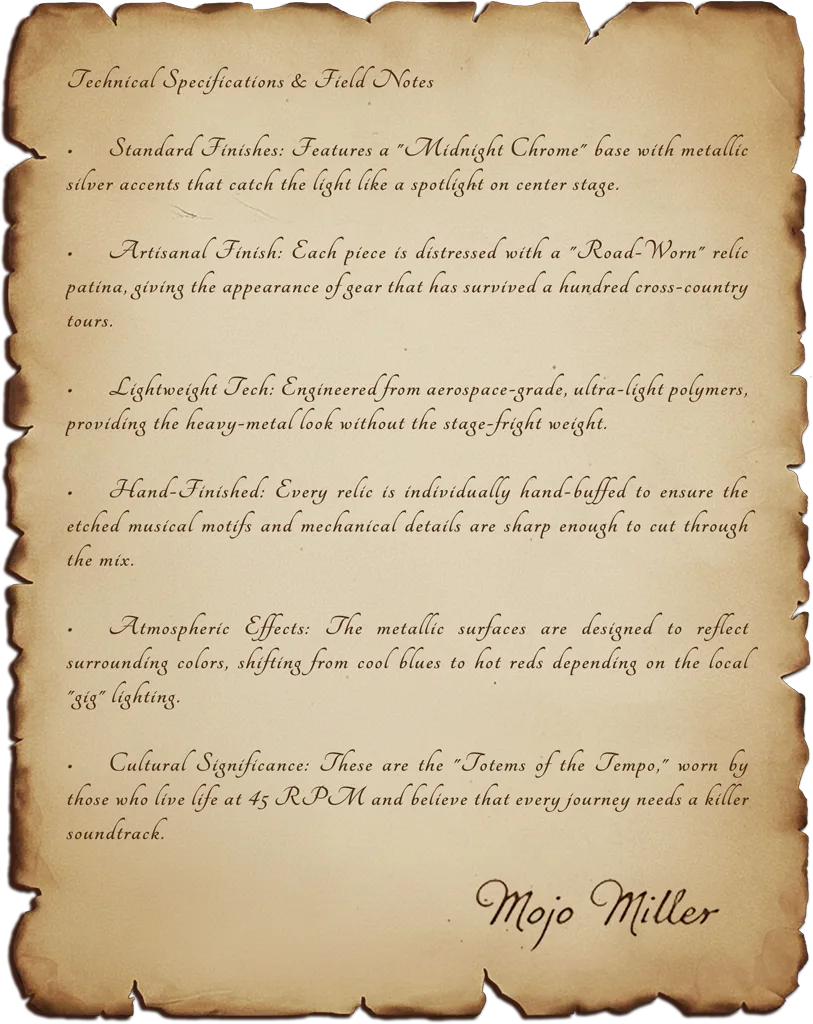 Technical Specifications & Field Notes
• Standard Finishes: Features a "Midnight Chrome" base with metallic
silver accents that catch the light like a spotlight on center stage.
• Artisanal Finish: Each piece is distressed with a "Road-Worn" relic
patina, giving the appearance of gear that has survived a hundred cross-country
tours.
• Lightweight Tech: Engineered from aerospace-grade, ultra-light polymers,
providing the heavy-metal look without the stage-fright weight.
• Hand-Finished: Every relic is individually hand-buffed to ensure the
etched musical motifs and mechanical details are sharp enough to cut through
the mix.
• Atmospheric Effects: The metallic surfaces are designed to reflect
surrounding colors, shifting from cool blues to hot reds depending on the local
"gig" lighting.
• Cultural Significance: These are the "Totems of the Tempo," worn by
those who live life at 45 RPM and believe that every journey needs a killer
soundtrack.
Mojo Miller